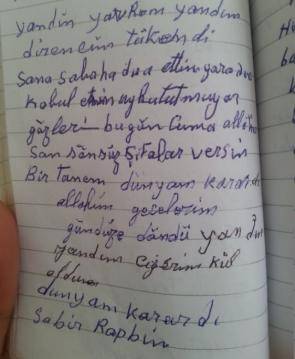 yandin yavrkom yandim
direncim tükendi
Sana sabaha dua ettin yaradna
kabul etsin uyku tutmuyor
gözleri bugün Cuma allaha
San sansüz şifalar versin
Bir tanem dünyam karardi
allahim geceleim
gündüze döndü yandm
yandım Ciğerim kül
oldum
dunyam karardı
Sabir Rapbim